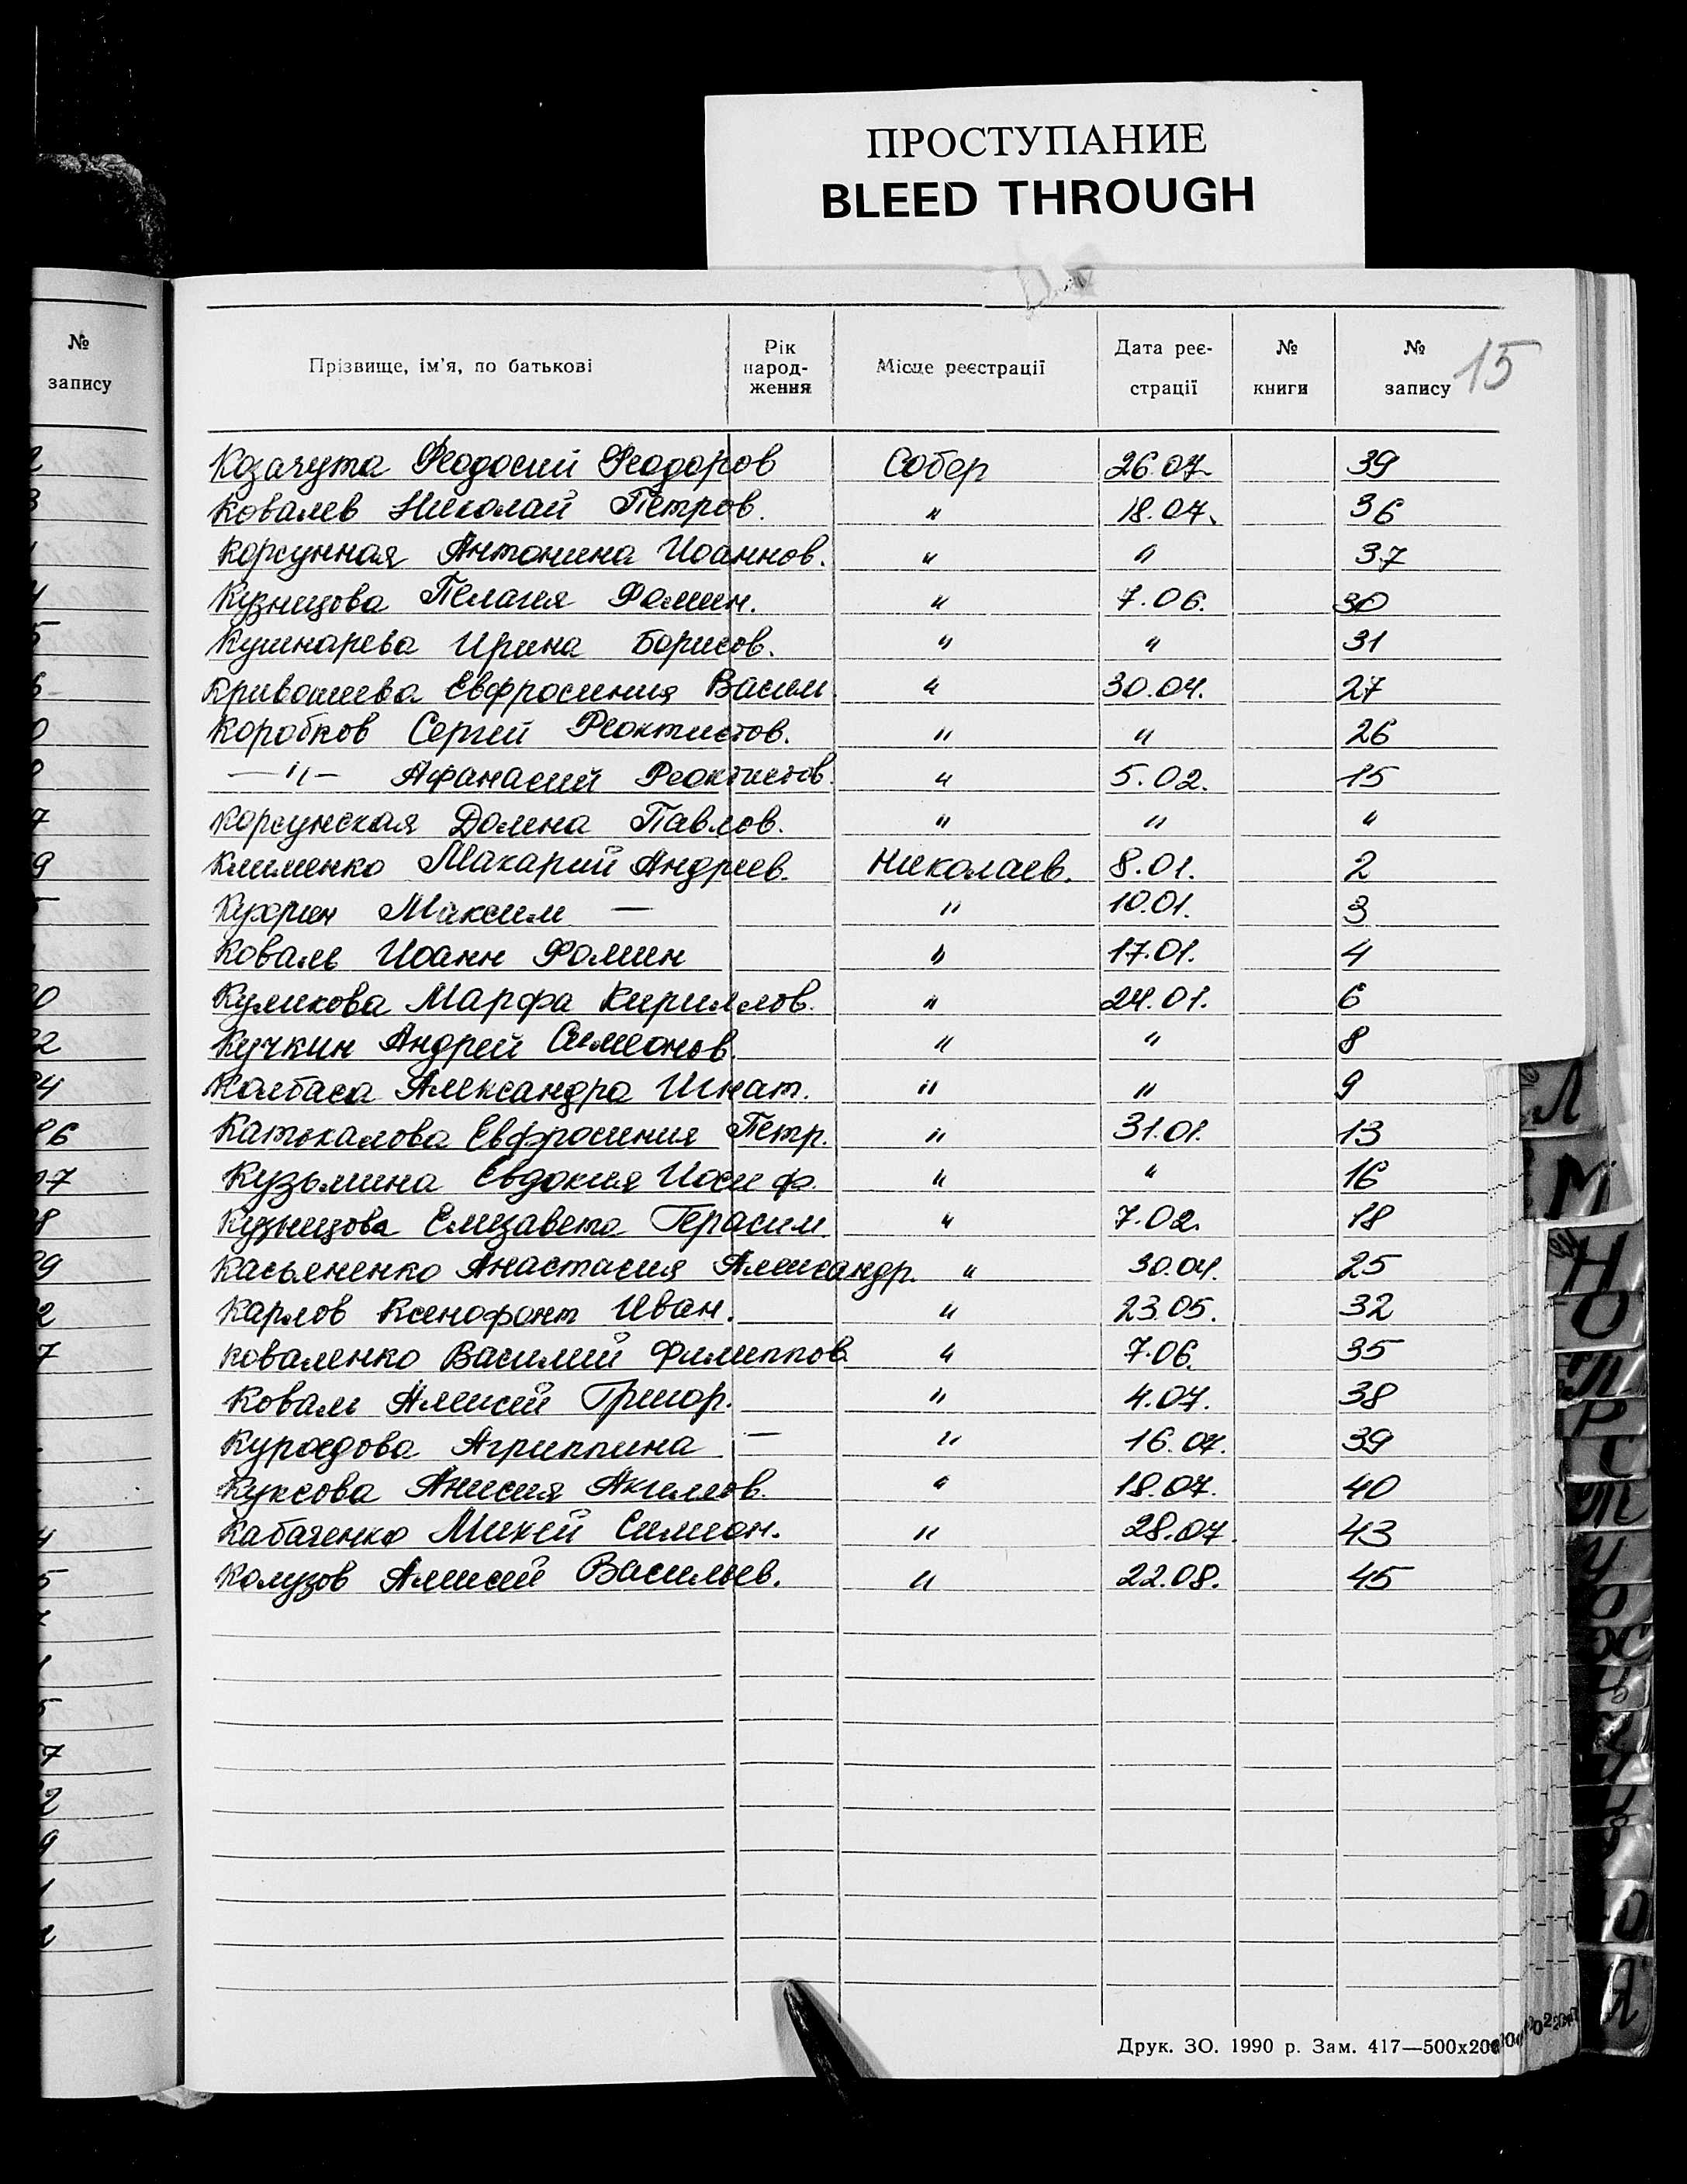 ПРОСТУПАНИЕ
BLEED THROUGH
№ запису
Прізвище, ім'я, по батькові Рік народ-ження Місце реєстрації Дата реє-страції № книги № запису 15
Козачута Феодосий Феодоров Собор 26.07. 39
Ковалев Николай Петров. " 18.07. 36
Корсунная Антонина Иоаннов. " " 37
Кузнецова Пелагия Фомин. " 7.06. 30
Кушнарева Ирина Борисов. " " 31
Кривошеева Евфросиния Васил. " 30.04. 27
Коробков Сергей Феоктистов. " " 26
—"— Афанасий Феоктистов. " 5.02. 15
Корсунская Домна Павлов. " " "
Клименко Макарий Андреев. Николаев. 8.01. 2
Кухрин Максим — " 10.01. 3
Коваль Иоанн Фомин " 17.01. 4
Куликова Марфа Кириллов. " 24.01. 6
Кучкин Андрей Симеонов. " " 8
Колбаса Александра Игнат. " " 9
Катокалова Евфросиния Петр. " 31.01. 13
Кузьмина Евдокия Иосиф. " " 16
Кузнецова Елизавета Герасим. " 7.02. 18
Касьяненко Анастасия Александр. " 30.04. 25
Карлов Ксенофонт Иван. " 23.05. 32
Коваленко Василий Филиппов. " 7.06. 35
Коваль Алексей Григор. " 4.07. 38
Куроедова Агриппина — " 16.07. 39
Куксова Анисия Акимов. " 18.07. 40
Кабаченко Михей Симеон. " 28.07. 43
Колузов Алексей Васильев. " 22.08. 45
Друк. ЗО. 1990 р. Зам. 417—500х200
Л
М
Н
О
П
Р
С
Т
У